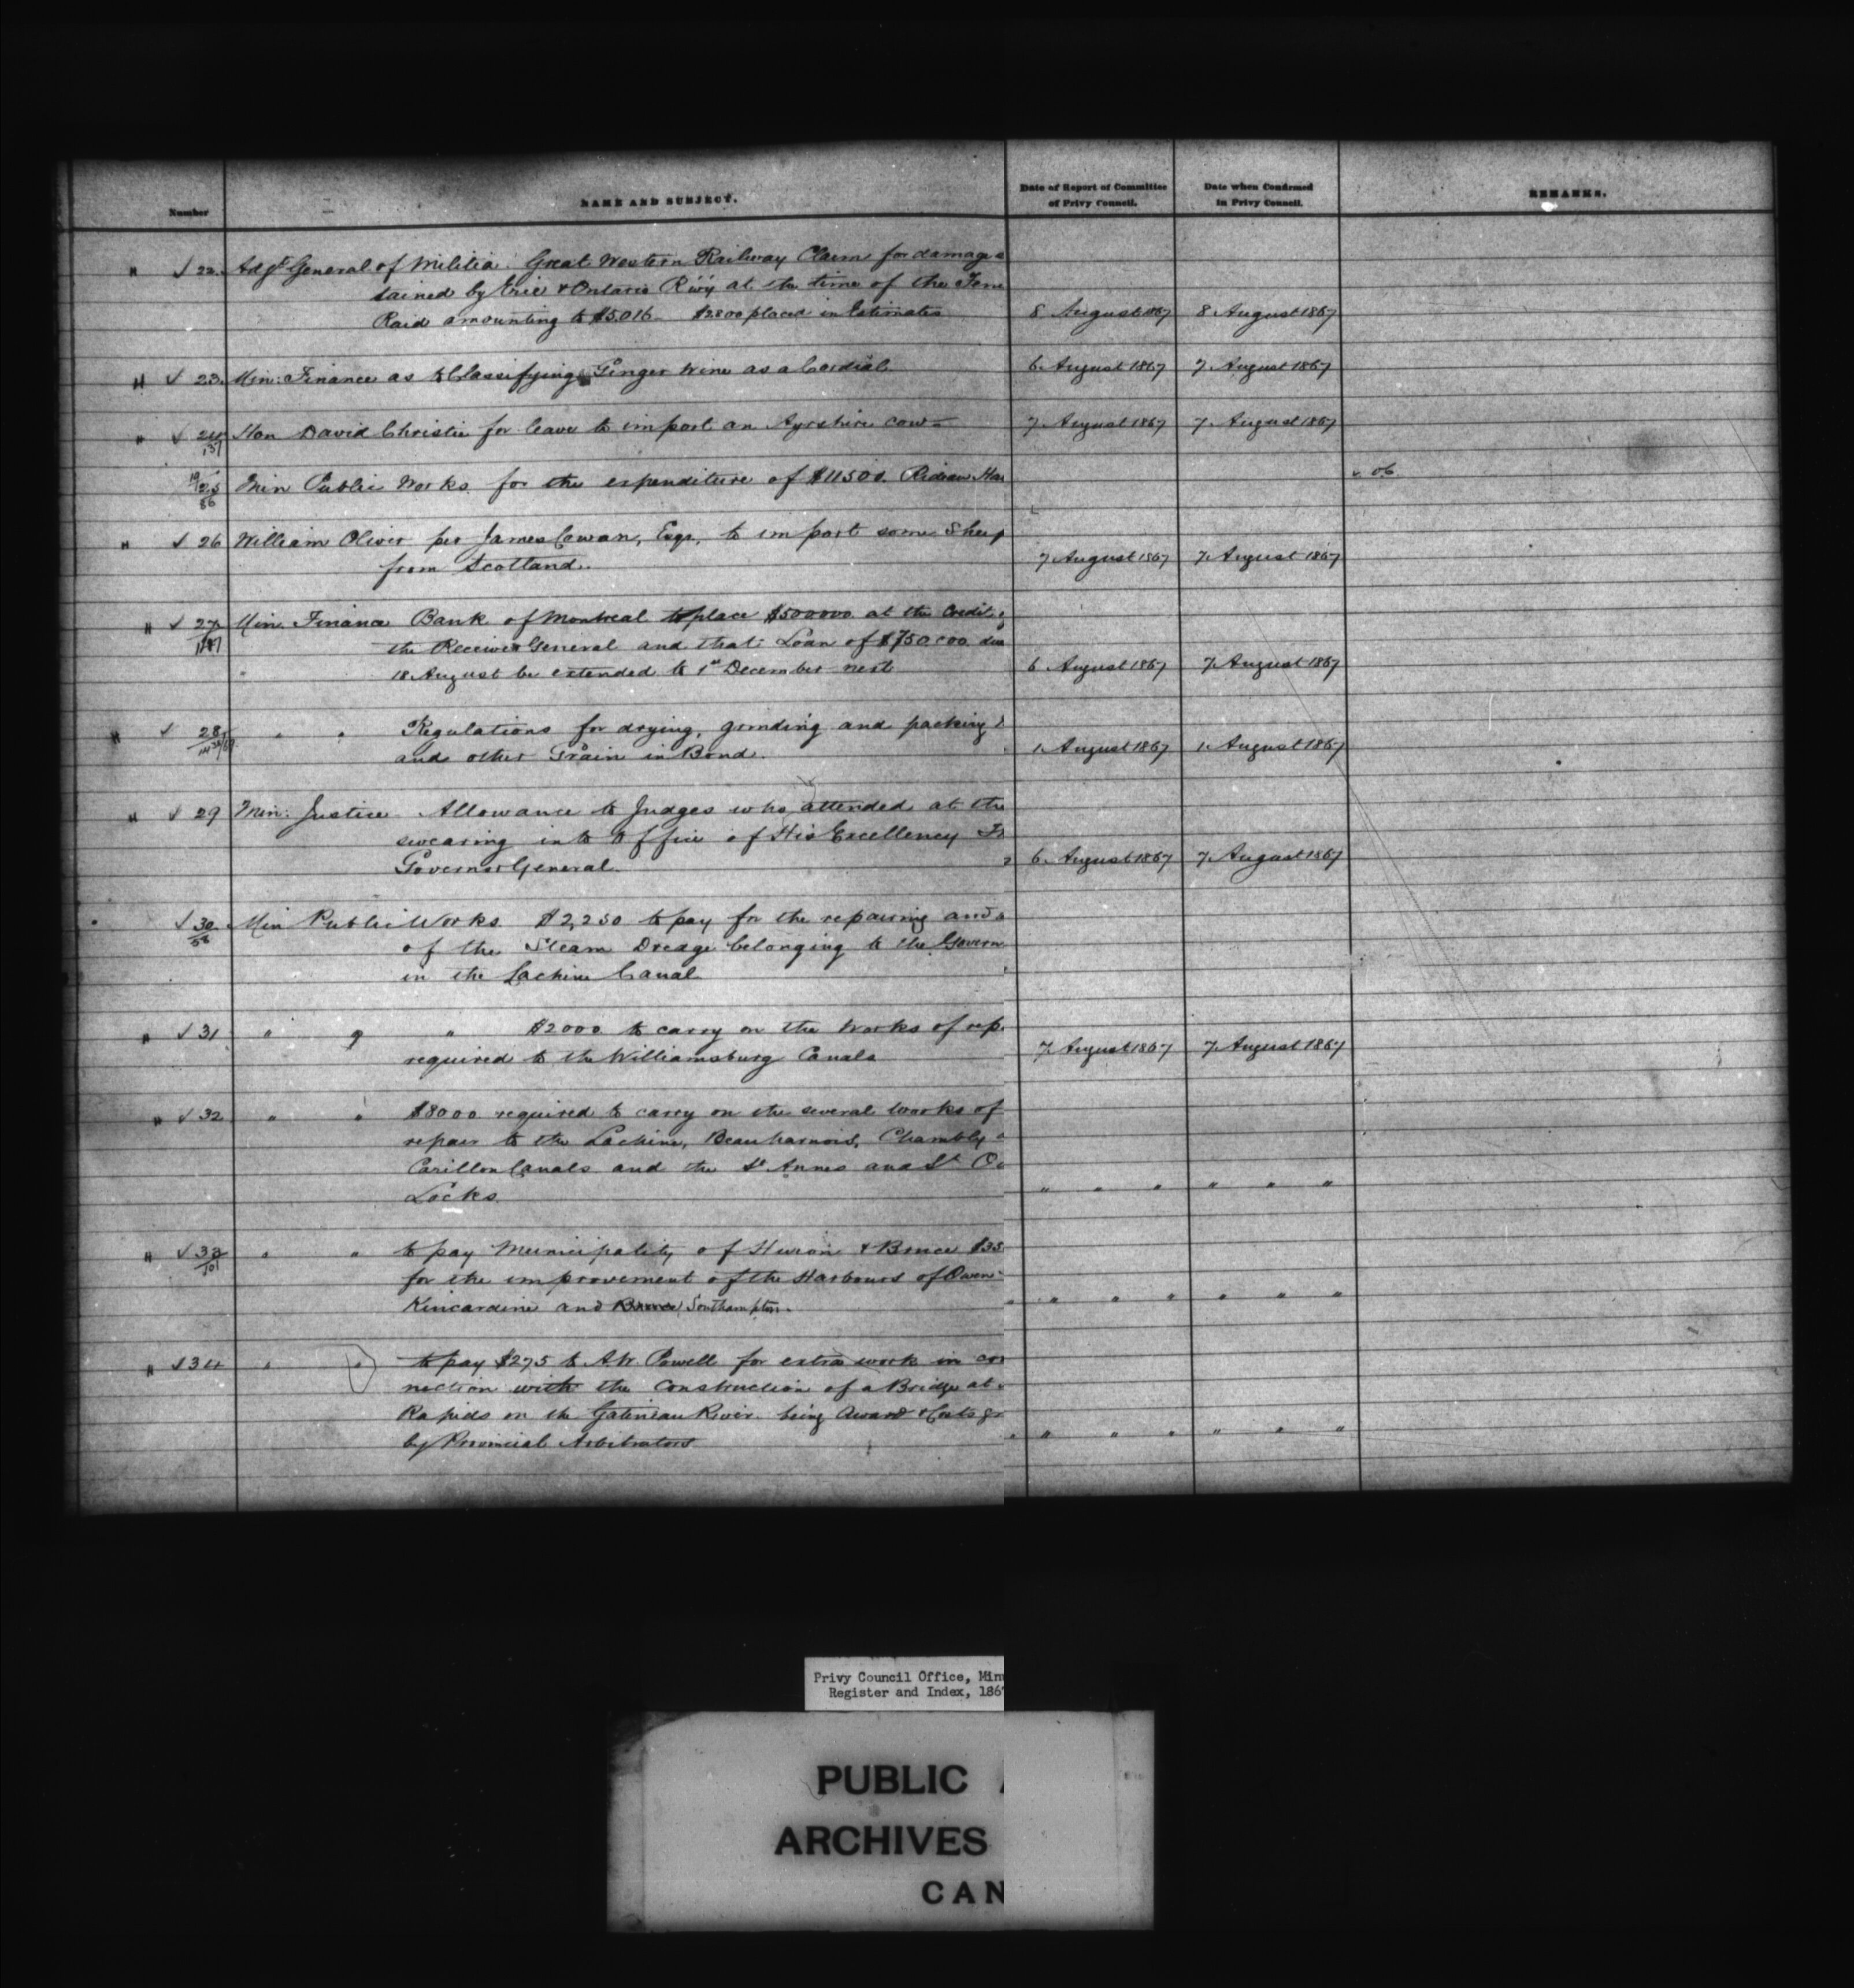 Number NAME AND SUBJECT. Date of Report of Committee of Privy Council. Date when Confirmed in Privy Council. REMARKS.
" √ 22. Adjt General of Militia. Great Western Railway Claim for damage
tained by Erie & Ontario R'wy at the time of the Fen
Raid amounting to $5016. $2800 placed in Estimates 8 August 1867 8 August 1867
" √ 23. Min: Finance as to Classifying Ginger Wine as a Cordial 6. August 1867 7. August 1867
" √ 24 Hon David Christie for leave to import an Ayrshire cow 7 August 1867 7. August 1867
25 Min Public Works for the expenditure of $11500. Rideau Ha
86
" √ 26 William Oliver per James Cowan, Esqr., to import some Sheep
from Scotland. 7 August 1867 7. August 1867
" √ 27 Min. Finance Bank of Montreal to place $500000 at the Credit
the Receiver General and that Loan of $750.000. due
" 18 August be extended to 1st December next 6 August 1867 7. August 1867
" √ 28 " " Regulations for drying, grinding and packing
and other Grain in Bond. 1. August 1867 1. August 1867
" √ 29 Min: Justice Allowance to Judges who attended at the
swearing in to Office of His Excellency
Governor General. 6. August 1867 7. August 1867
√ 30 Min Public Works $2,250 to pay for the repairing and
of the Steam Dredge belonging to the Govern
in the Lachine Canal
" √ 31 " " " $2000 to carry on the Works of rep
required to the Williamsburg Canals 7 August 1867 7. August 1867
" √ 32 " " $8000 required to carry on the several works of
repair to the Lachine, Beauharnois, Chambly
Carillon Canals and the St Annes and St O
Locks. " " " " " "
" √ 33 " " to pay Municipality of Huron & Bruce $35
101 for the improvement of the Harbours of Owen
Kincardine and Bruce Southampton. " " " " " "
" √ 34 " " to pay $275 to A.W. Powell for extra work in con
nection with the Construction of a Bridge at
Rapids on the Gatineau River. being Award & Costs
by Provincial Arbitrators " " " " " "
Privy Council Office, Min
Register and Index, 186
PUBLIC A
ARCHIVES
CAN